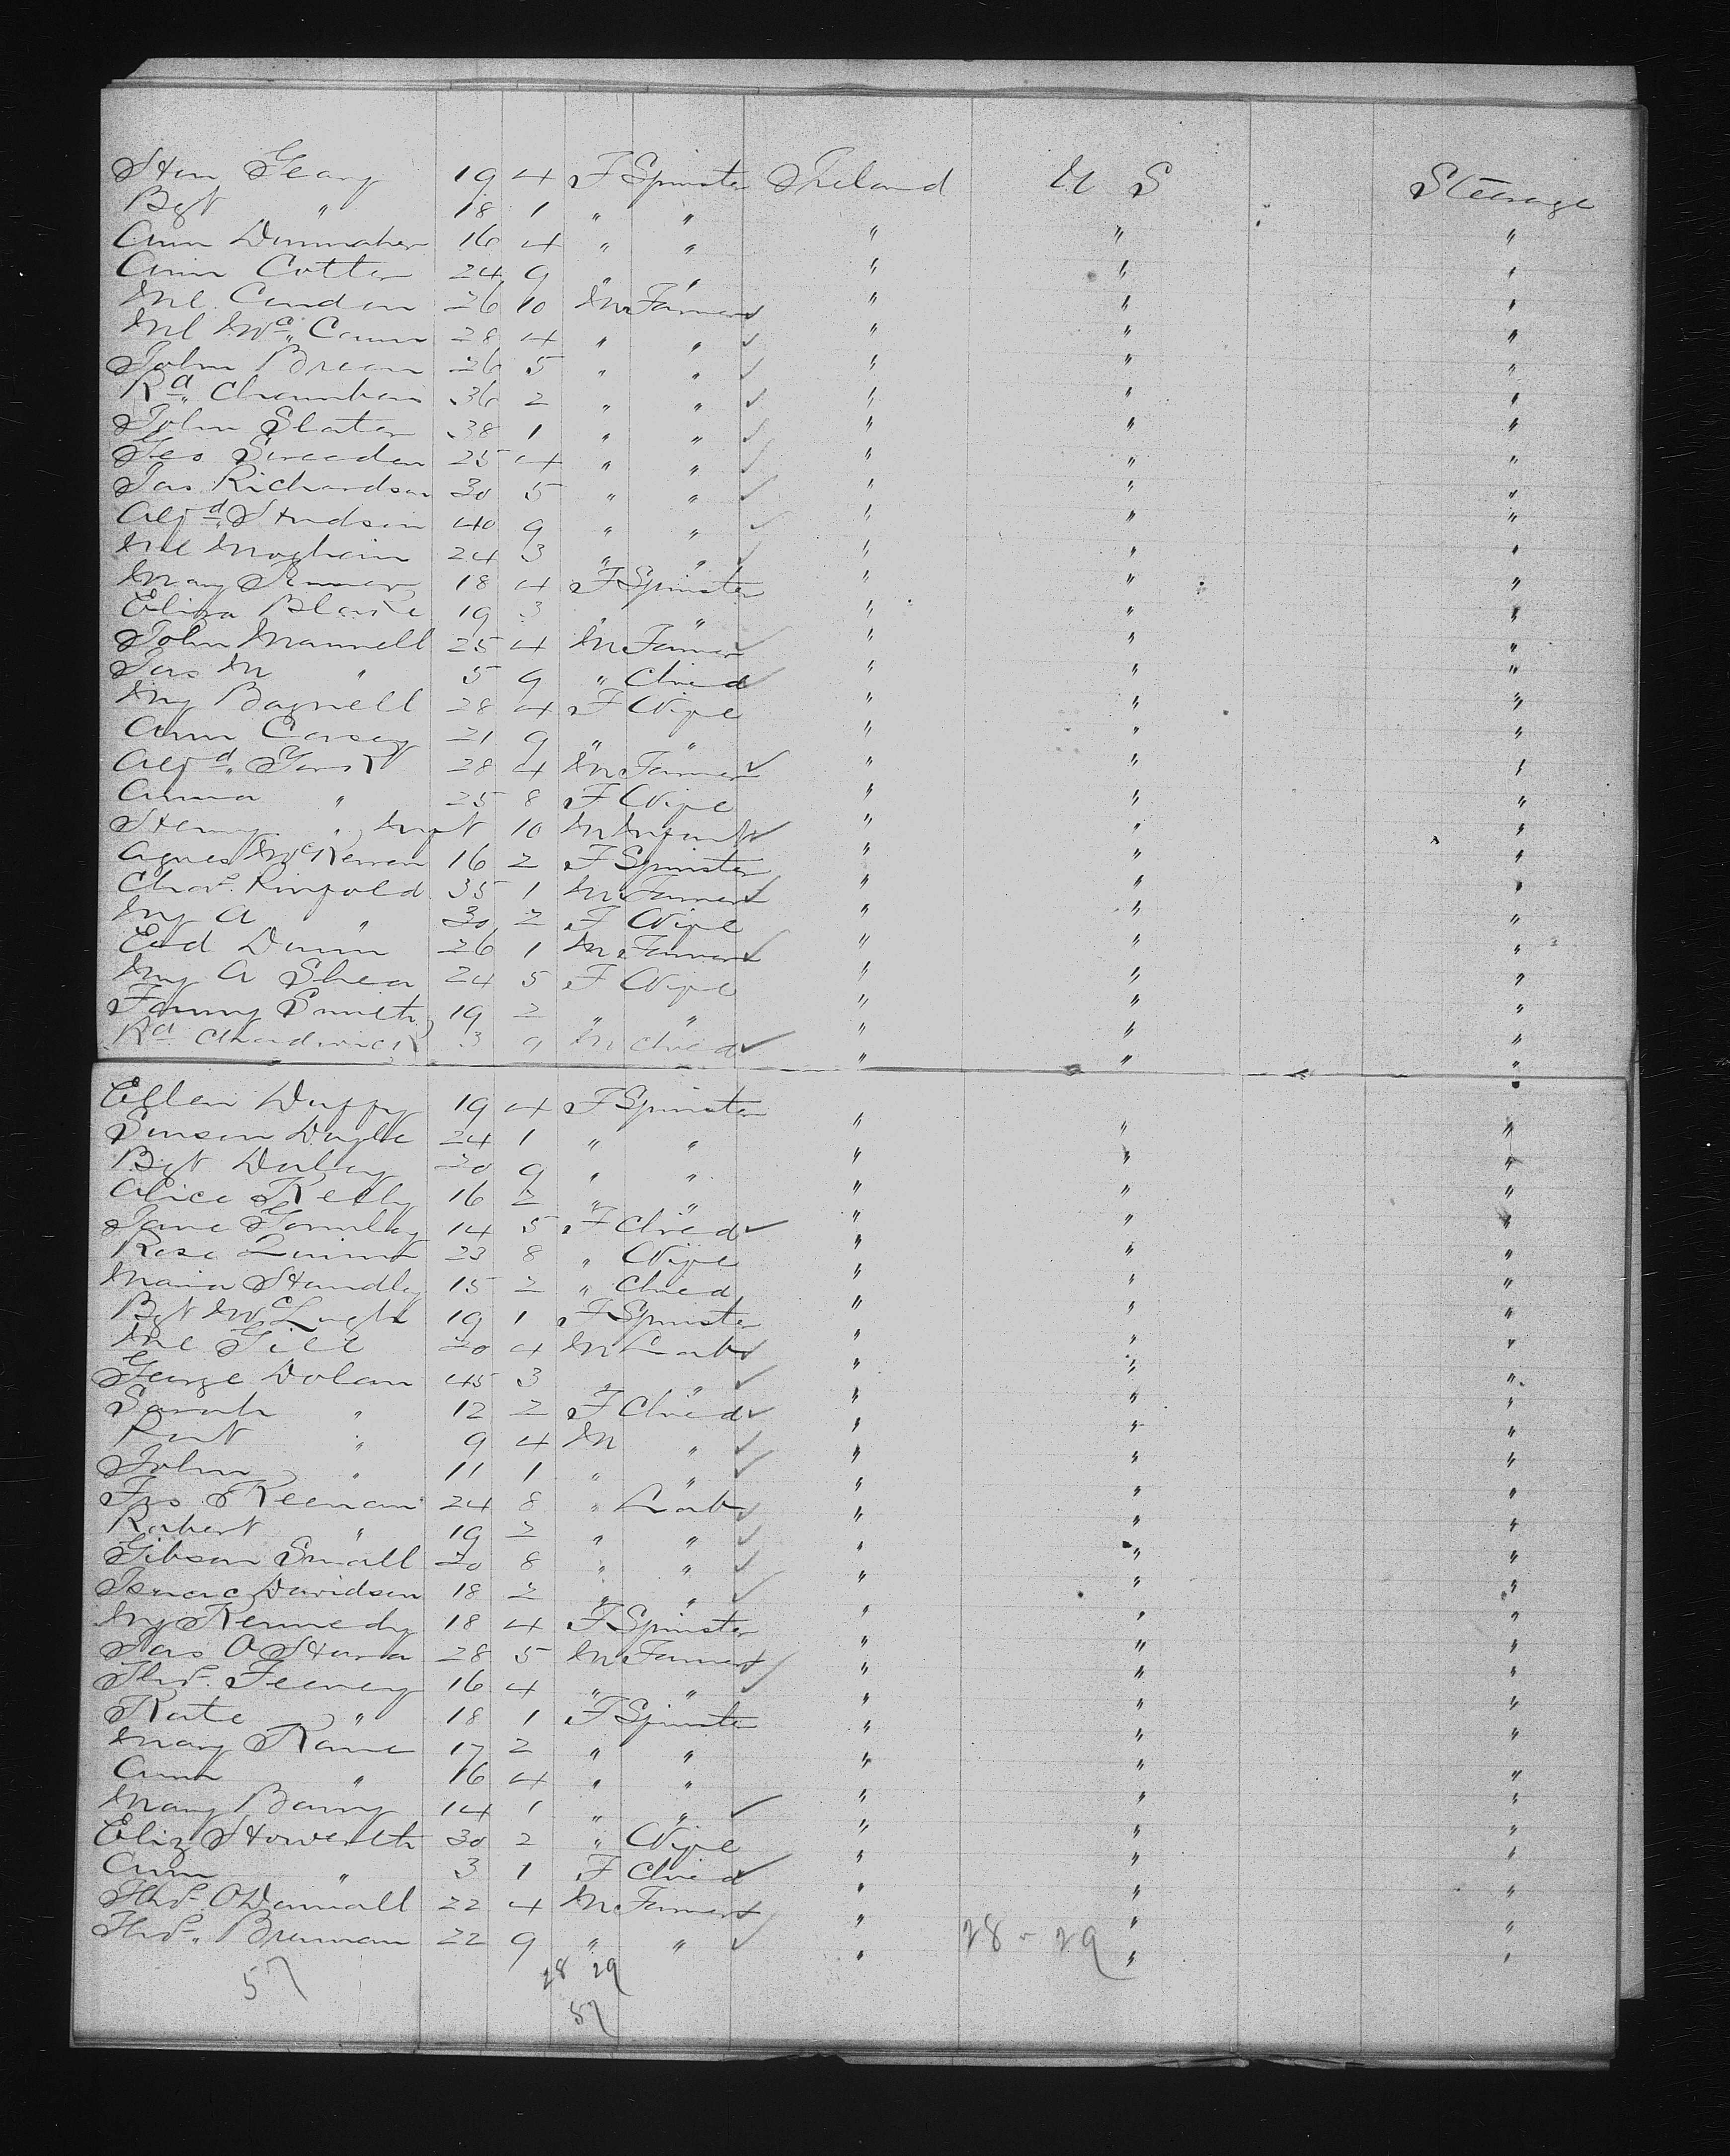 Han Geary 19 4 F Spinster Ireland U S Steerage
Bgt " 18 1 " "
Ann Dunmaher 16 4 " " " " "
Ann Cotter 24 9 " " " " "
Ml Condon 26 10 M Farmer " " "
Ml McCann 28 4 " " " " "
John Breen 26 5 " " " " "
Rd Chambers 36 2 " " " " "
John Slater 38 1 " " " " "
Geo 25 4 " " " " "
Jas Richardson 30 5 " " " " "
Alfd Hudson 40 9 " " " " "
Ml 24 3 " " " " "
Mary 18 4 F Spinster " " "
Eliza Blake 19 3 " " " " "
John Mannell 25 4 M Farmer " " "
Jas M " 5 9 " Child " " "
My Bagnell 28 4 F Wife " " "
Ann Casey 21 9 " " " " "
Alfd 28 4 M Farmer " " "
Anna " 25 8 F Wife " " "
Henry " Inft 10 M Infant " " "
Agnes McKeown 16 2 F Spinster " " "
Chas Pinfold 35 1 M Farmer " " "
My A " 30 2 F Wife " " "
Ed Dunn 26 1 M Farmer " " "
My A Shea 24 5 F Wife " " "
Fanny Smith 19 2 " " " " "
Rd Chadwick 3 9 M Child " " "
Ellen Duffy 19 4 F Spinster
Susan Doyle 24 1 " " " " "
Bgt Darby 20 9 " " " " "
Alice Kelly 16 2 " " " " "
Jane Gormley 14 5 F Child " " "
Rose Quinn 23 8 " Wife " " "
Maria Handly 15 2 " Child " " "
Bgt 19 1 F Spinster " " "
Ml Gill 20 4 M Lab " " "
George Dolan 45 3 " " " " "
Sarah " 12 2 F Child " " "
Robt " 9 4 M " " " "
John " 11 1 " " " " "
Jas Keenan 24 8 " Lab " " "
Robert " 19 2 " " " " "
Gibson Small 20 8 " " " " "
Isaac Davidson 18 2 " " " " "
My Kennedy 18 4 F Spinster " " "
Jas O'Hara 28 5 M Farmer " " "
Thos Feeney 16 4 " " " " "
Kate " 18 1 F Spinster " " "
Mary Kane 17 2 " " " " "
Ann " 16 4 " " " " "
Mary Barry 14 1 " " " " "
Eliz Howorth 30 2 " Wife " " "
Ann " 3 1 F Child " " "
Thos O'Donnall 22 4 M Farmer " " "
Thos Brennan 22 9 " " " 28 - 29 " "
57 28 29
57